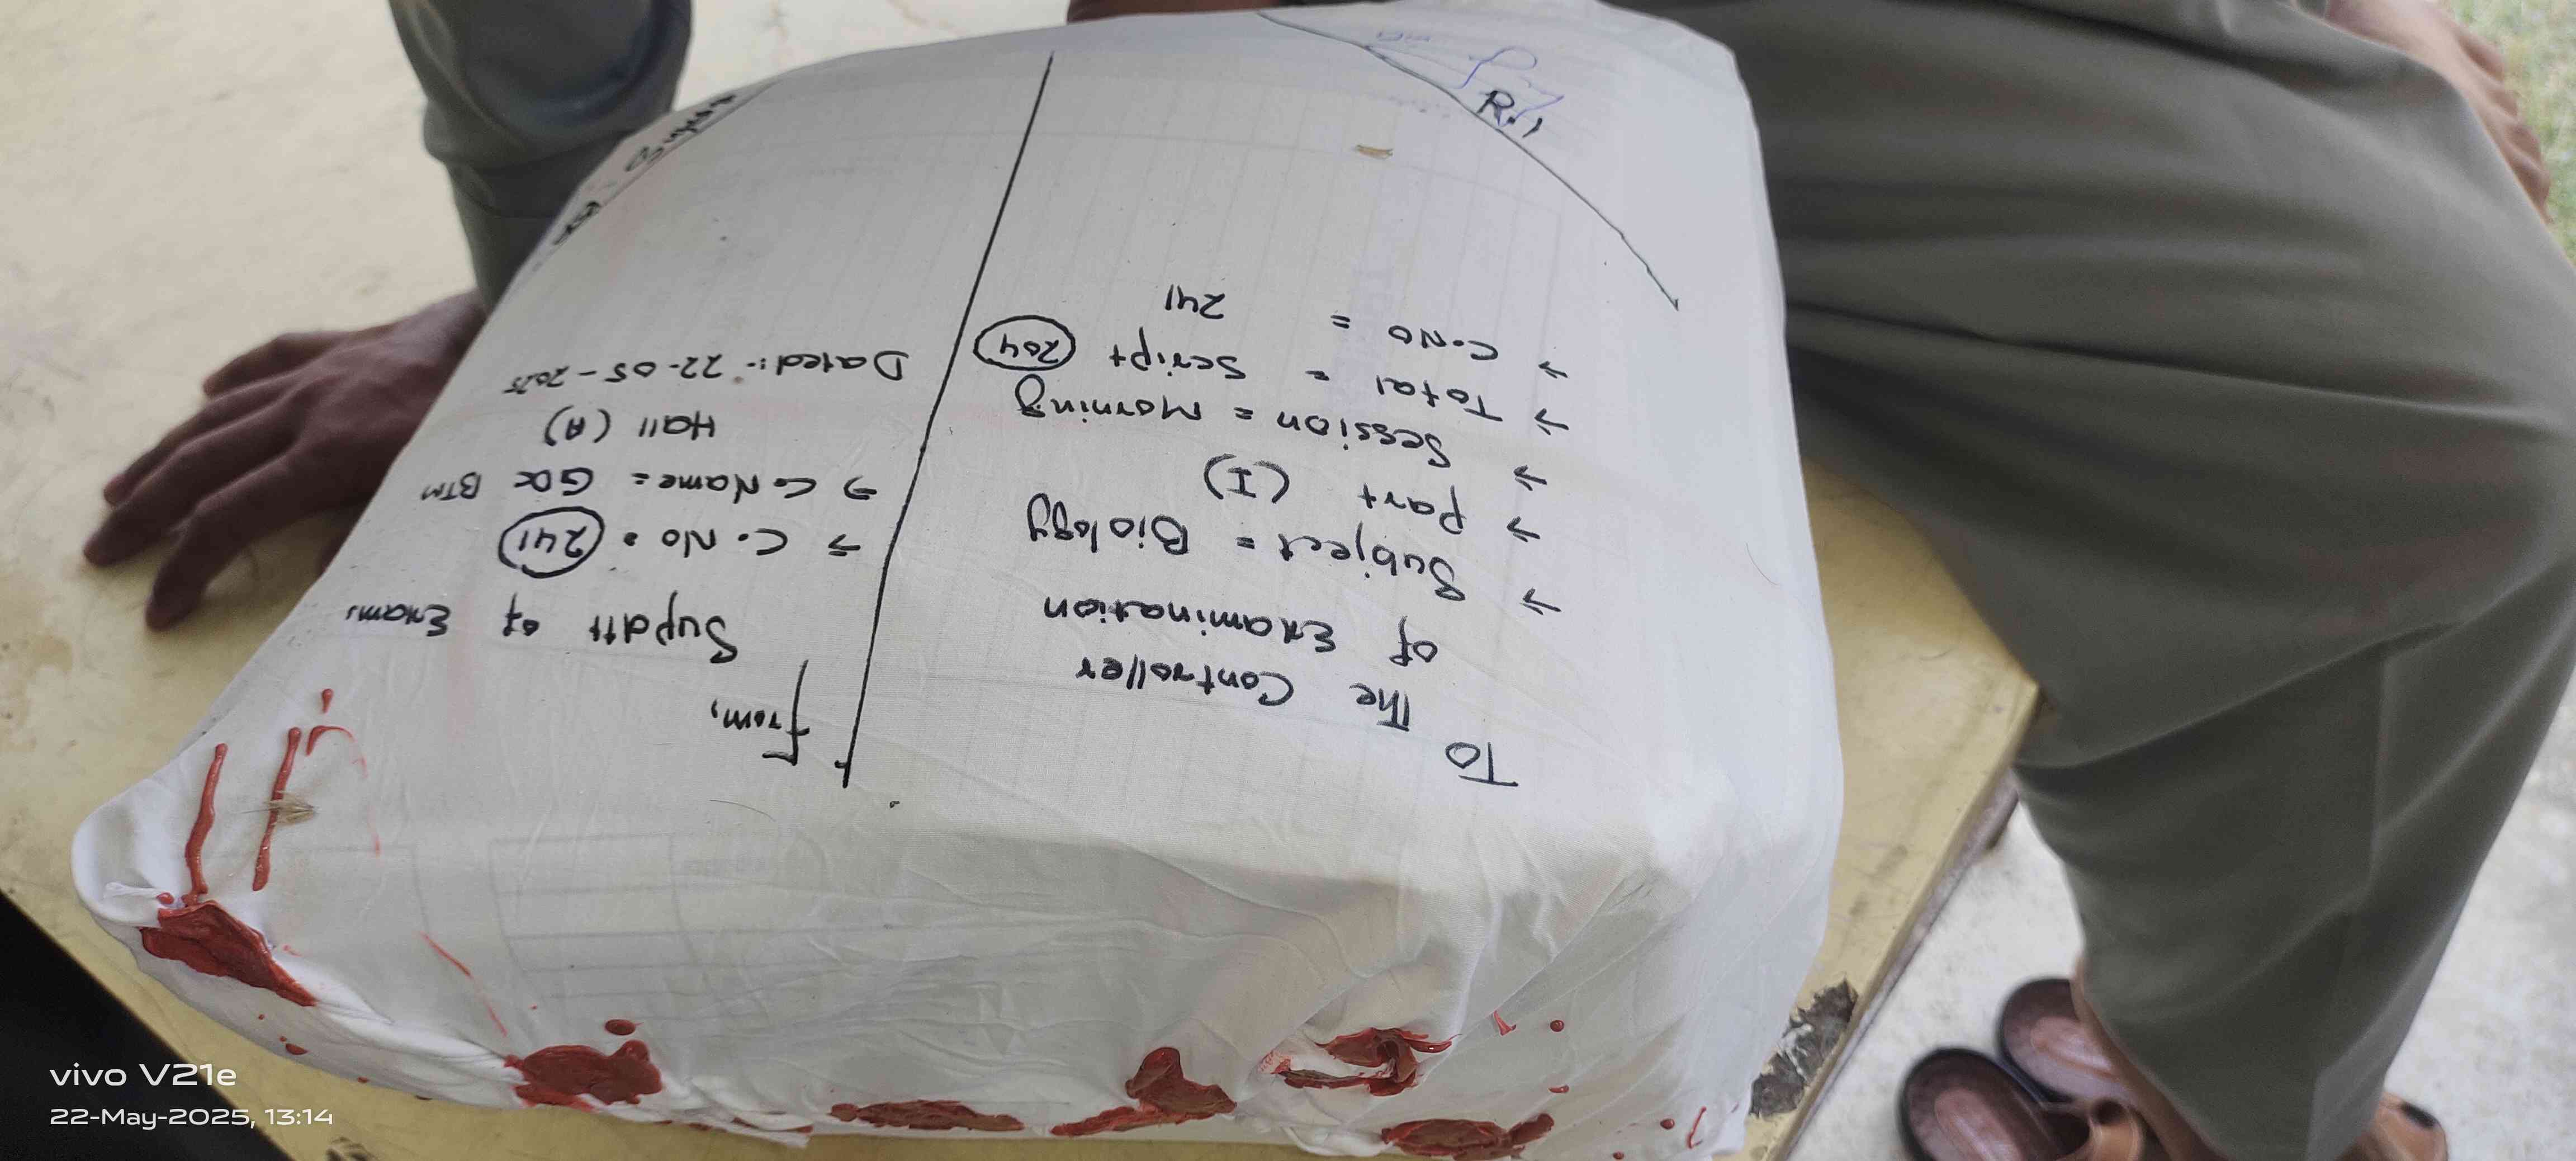 To
The Controller
of Examination
→ Subject = Biology
→ Part (I)
→ Session = Morning
→ Total = Script 204
→ C.No = 241
R.1
From,
Supdtt of Exam:
→ C.No = 241
→ C.Name = GDC BTM
Hall (A)
Dated:- 22-05-2025
vivo V21e
22-May-2025, 13:14